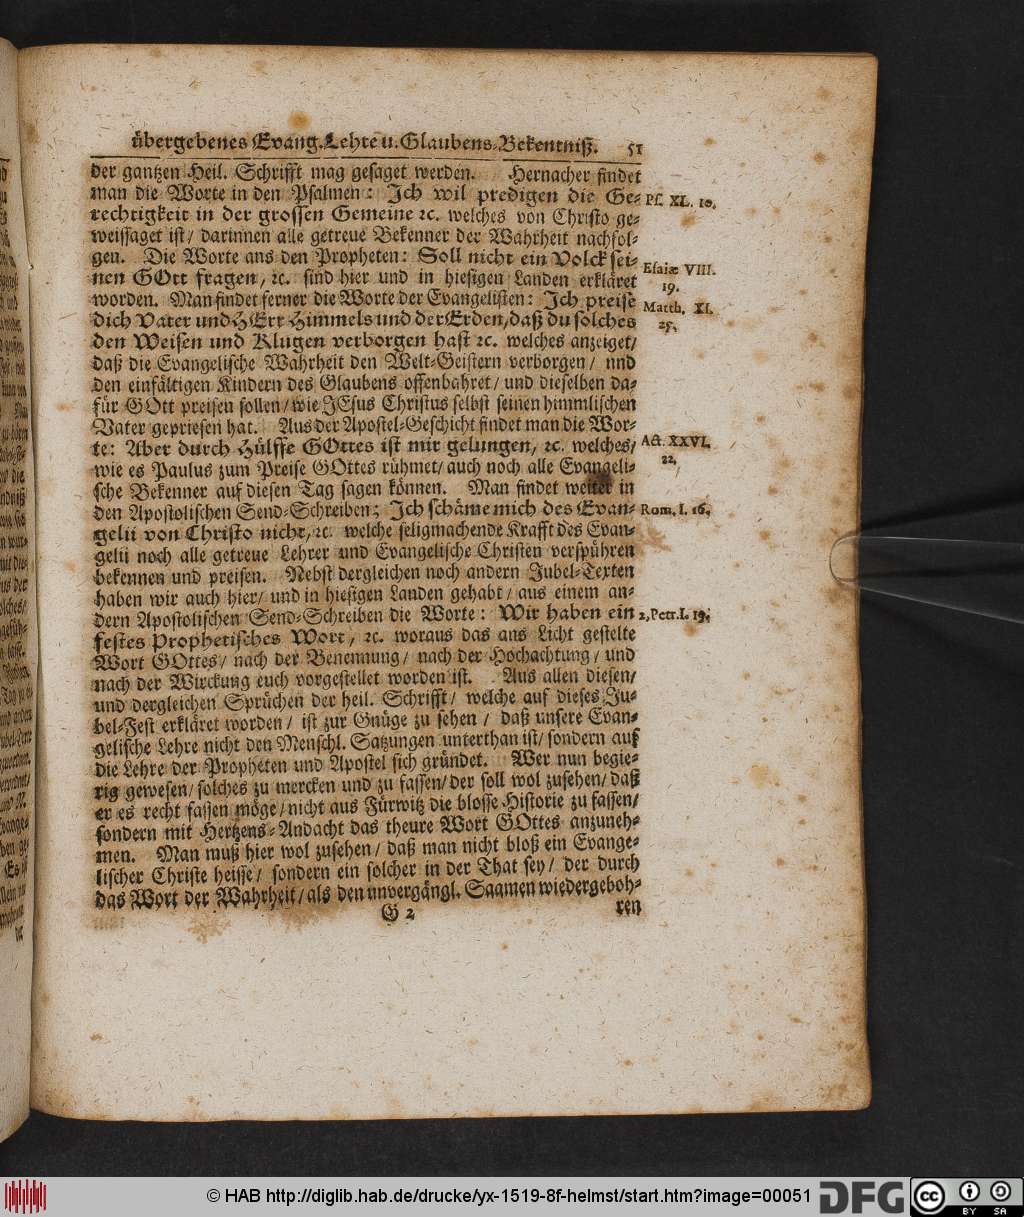 übergebenes Evang. Lehre u. Glaubens-Bekentniß. 51
der gantzen Heil. Schrifft mag gesaget werden. Hernacher findet
man die Worte in den Psalmen: Ich wil predigen die Ge- Ps. XL. 10.
rechtigkeit in der grossen Gemeine ꝛc. welches von Christo ge-
weissaget ist/ darinnen alle getreue Bekenner der Wahrheit nachfol-
gen. Die Worte aus den Propheten: Soll nicht ein Volck sei- Esaiæ VIII.
nen GOtt fragen, ꝛc. sind hier und in hiesigen Landen erkläret 19.
worden. Man findet ferner die Worte der Evangelisten: Ich preise Matth. XI.
dich Vater und HErr Himmels und der Erden, daß du solches 25.
den Weisen und Klugen verborgen hast ꝛc. welches anzeiget/
daß die Evangelische Wahrheit den Welt-Geistern verborgen/ und
den einfältigen Kindern des Glaubens offenbahret/ und dieselben da-
für GOtt preisen sollen/ wie JEsus Christus selbst seinen himmlischen
Vater gepriesen hat. Aus der Apostel-Geschicht findet man die Wor-
te: Aber durch Hülffe GOttes ist mir gelungen, ꝛc. welches/ Act. XXVI.
wie es Paulus zum Preise GOttes rühmet/ auch noch alle Evangeli- 22.
sche Bekenner auf diesen Tag sagen können. Man findet weiter in
den Apostolischen Send-Schreiben; Ich schäme mich des Evan- Rom. I. 16.
gelii von Christo nicht, ꝛc. welche seligmachende Krafft des Evan-
gelii noch alle getreue Lehrer und Evangelische Christen verspühren
bekennen und preisen. Nebst dergleichen noch andern Jubel-Texten
haben wir auch hier/ und in hiesigen Landen gehabt/ aus einem an-
dern Apostolischen Send-Schreiben die Worte: Wir haben ein 2. Petr. I. 19.
festes Prophetisches Wort, ꝛc. woraus das ans Licht gestelte
Wort GOttes/ nach der Benennung/ nach der Hochachtung/ und
nach der Wirckung euch vorgestellet worden ist. Aus allen diesen/
und dergleichen Sprüchen der heil. Schrifft/ welche auf dieses Ju-
bel-Fest erkläret worden/ ist zur Gnüge zu sehen/ daß unsere Evan-
gelische Lehre nicht den Menschl. Satzungen unterthan ist/ sondern auf
die Lehre der Propheten und Apostel sich gründet. Wer nun begie-
rig gewesen/ solches zu mercken und zu fassen/ der soll wol zusehen/ daß
er es recht fassen möge/ nicht aus Fürwitz die blosse Historie zu fassen/
sondern mit Hertzens-Andacht das theure Wort GOttes anzuneh-
men. Man muß hier wol zusehen/ daß man nicht bloß ein Evange-
lischer Christe heisse/ sondern ein solcher in der That sey/ der durch
das Wort der Wahrheit/ als den unvergängl. Saamen wiedergeboh-
G 2 ren
© HAB http://diglib.hab.de/drucke/yx-1519-8f-helmst/start.htm?image=00051 DFG cc BY SA